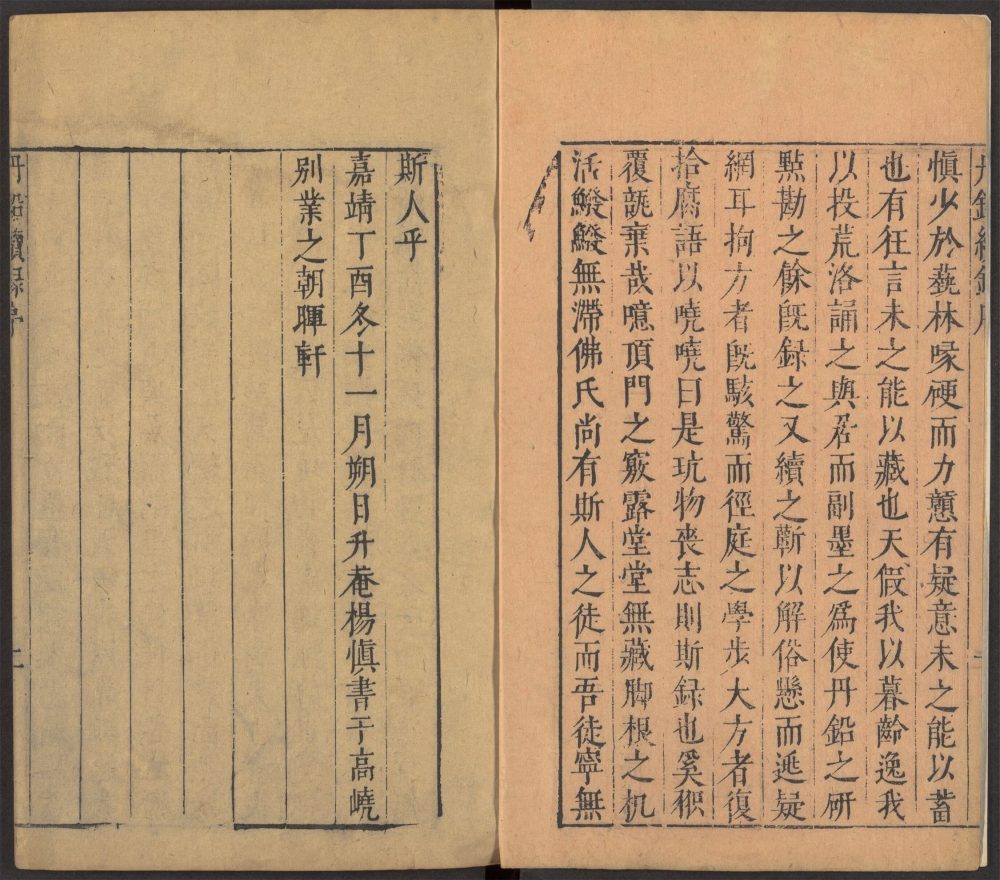 丹鉛續錄序
慎少於藝林喙硬而力戇有疑意未之能以蓄
也有狂言未之能以藏也天假我以暮齡逸我
以投荒洛誦之與君而副墨之爲使丹鉛之研
點勘之餘旣録之又續之蘄以解俗懸而逃疑
網耳拘方者旣駭驚而徑庭之學步大方者復
拾腐語以嘵嘵曰是玩物喪志則斯録也奚秖
覆瓿棄哉噫頂門之竅露堂堂無藏脚根之机
活鱍鱍無滯佛氏尚有斯人之徒而吾徒寧無
斯人乎
嘉靖丁酉冬十一月朔日升菴楊慎書于高嶢
別業之朝暉軒
丹鉛續録序
二